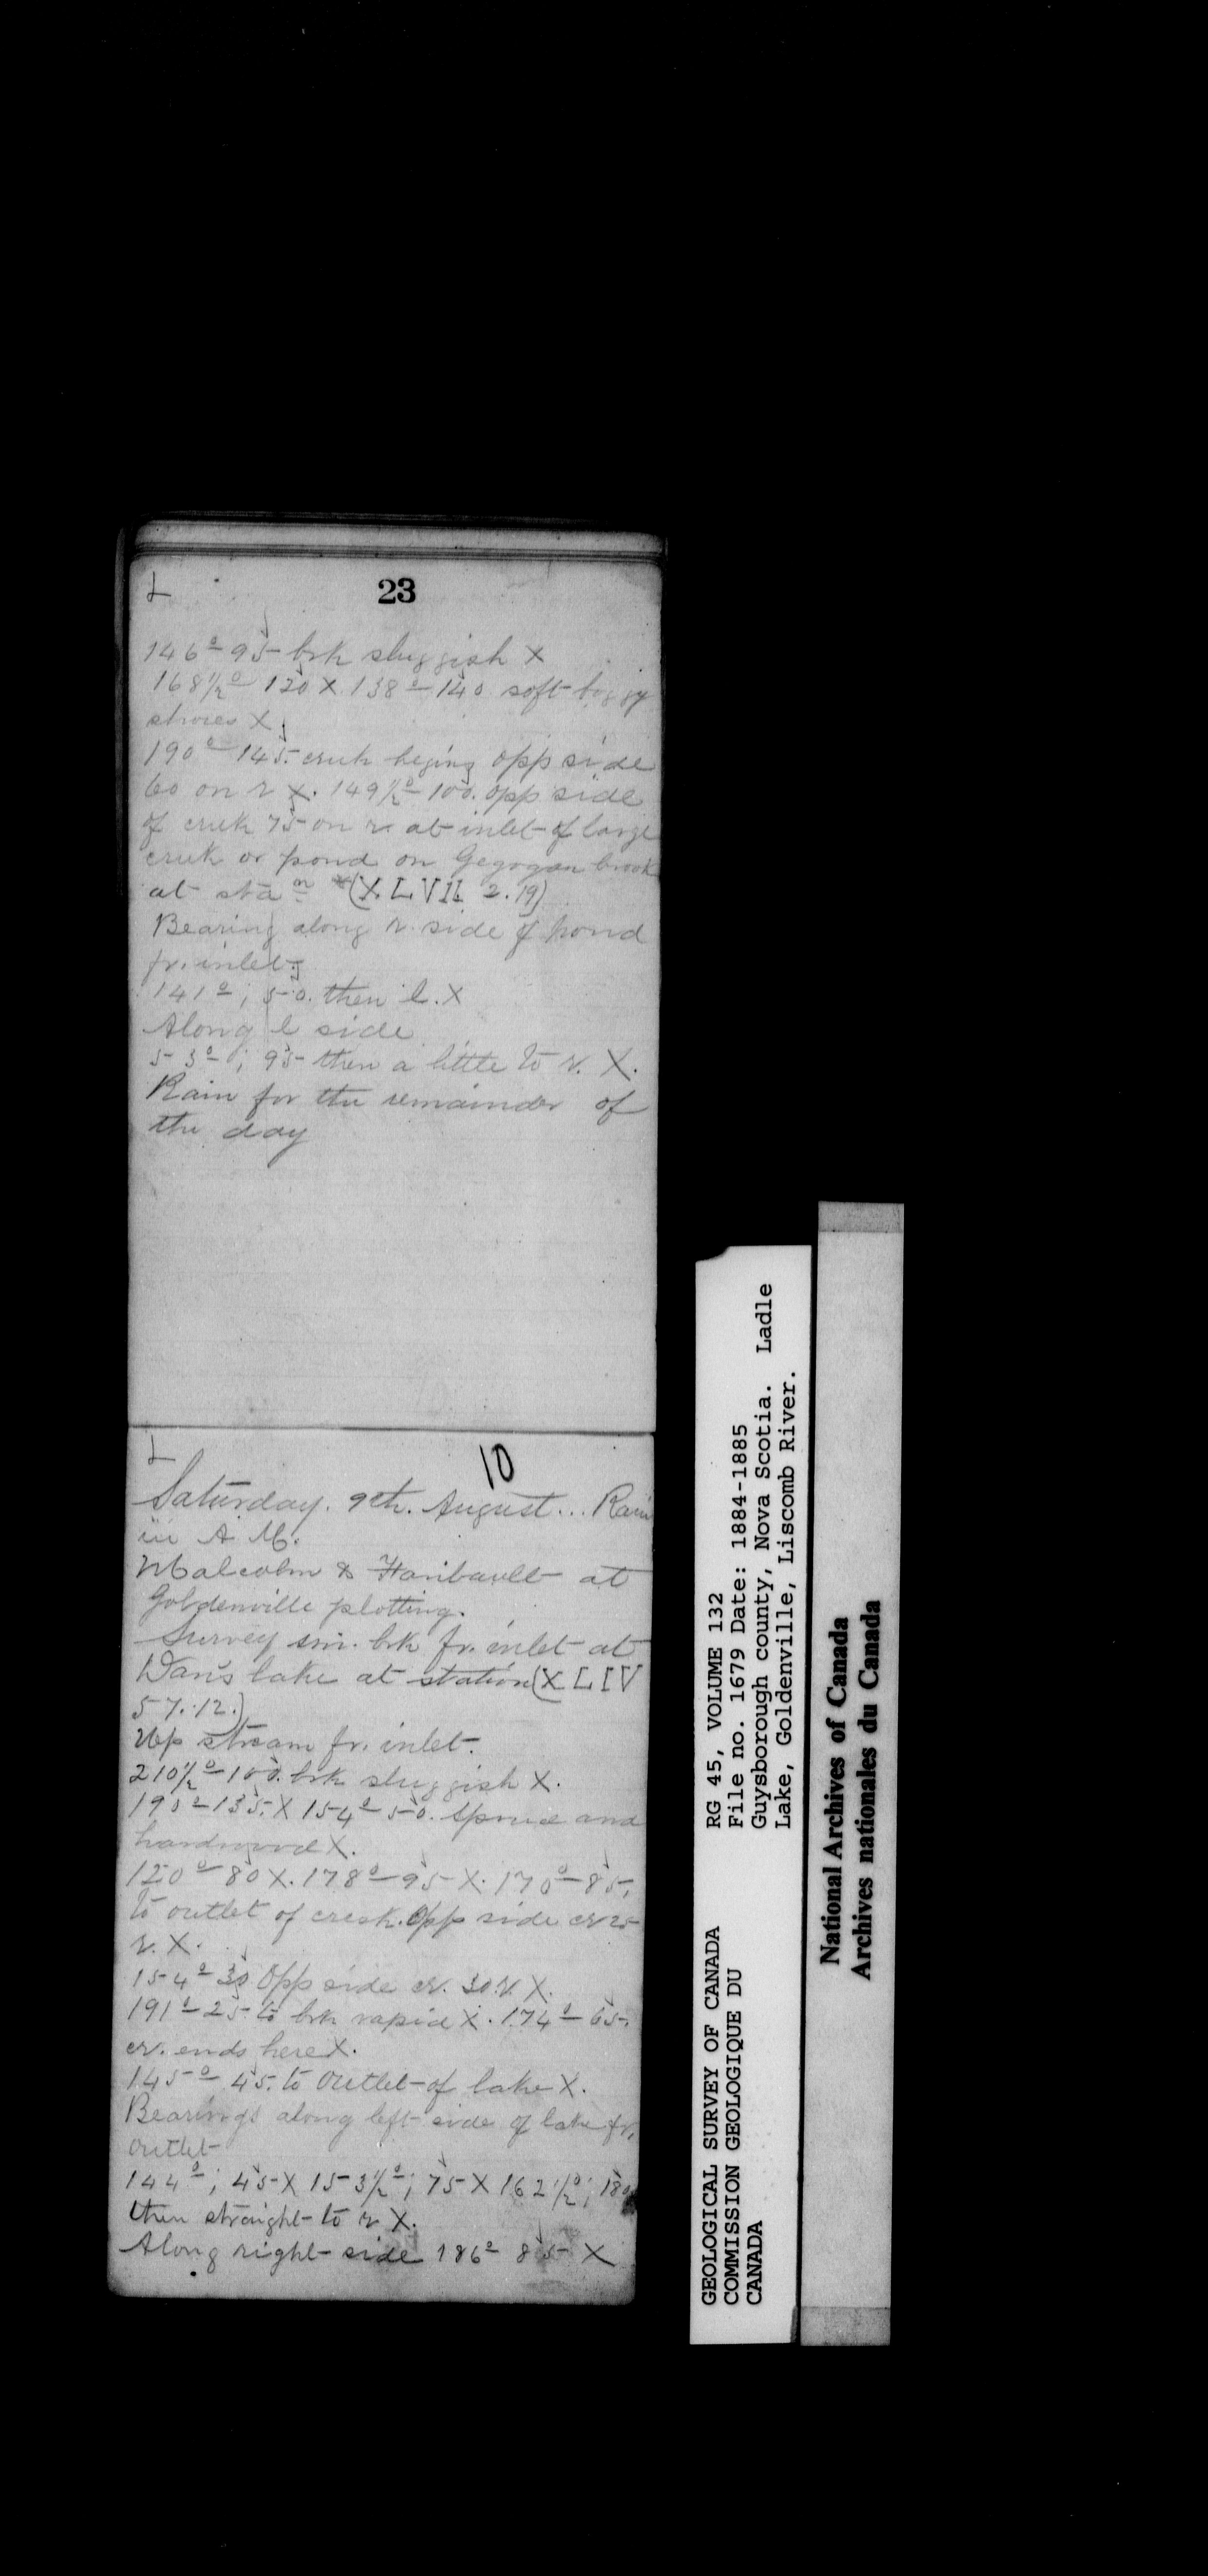 L
23
146º 95 brk sluggish X
168½º 120 X 138º 140 soft boggy
shores X
190º 145. creek begins opp side
60 on r X. 149½º 100. opp side
of creek 75 on r. at inlet of large
creek or pond on Gegogan brook
at staⁿ (X.L.VII 2.19)
Bearing along r. side of pond
fr. inlet
141º; 50. then l. X
Along l side
53º; 95 then a little to r. X.
Rain for the remainder of
the day
L
10
Saturday. 9th. August... Rain
in A M.
Malcolm & Faribault at
Goldenville plotting.
Survey sm. brk fr. inlet at
Dan's lake at station (X L I V
57.12.)
Up stream fr. inlet.
210½º 100. brk sluggish X.
190º 135. X 154º 50. Spruce and
hardwood X.
120º 80 X. 178º 95 X. 170º 85.
to outlet of creek. Opp side cr 25
r. X.
154º 30 Opp side cr. 30. r. X.
191º 25 to brk rapid X. 174º 65.
cr. ends here X.
145º 45. to outlet of lake X.
Bearings along left side of lake fr.
outlet
144º; 45 X 153½º; 75 X 162½º; 180
then straight to r X.
Along right side 186º 85 X
GEOLOGICAL SURVEY OF CANADA
COMMISSION GEOLOGIQUE DU
CANADA
RG 45, VOLUME 132
File no. 1679 Date: 1884-1885
Guysborough county, Nova Scotia. Ladle
Lake, Goldenville, Liscomb River.
National Archives of Canada
Archives nationales du Canada